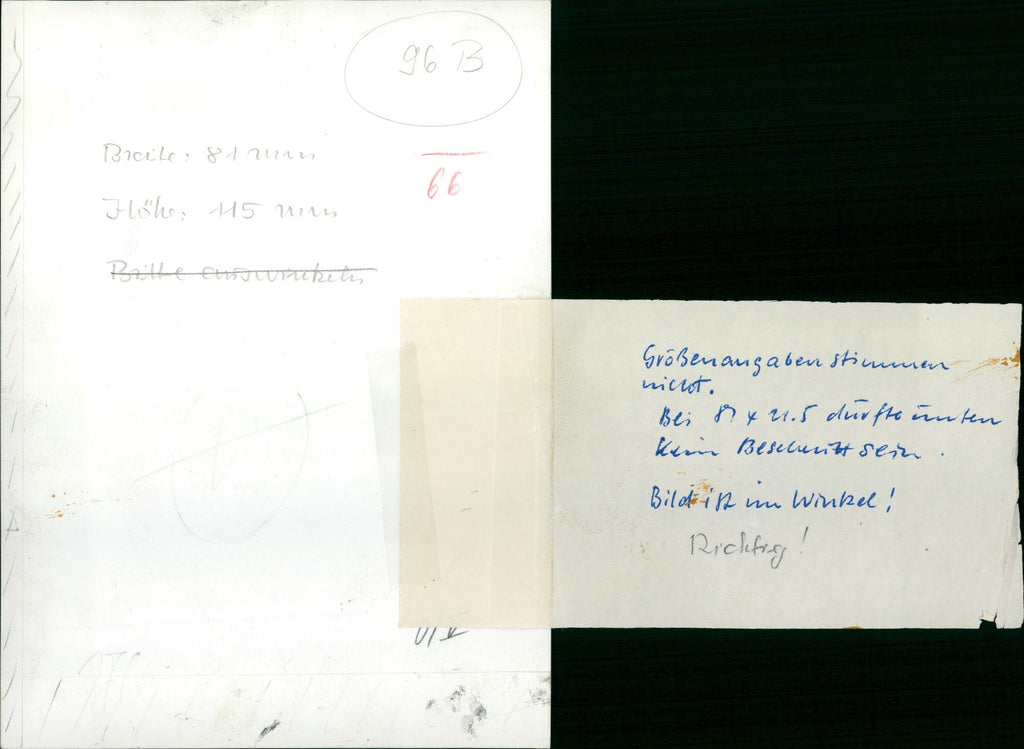 96 B
Breite: 81 mm
66
Höhe: 115 mm
Bitte auswinkeln
Größenangaben stimmen
nicht.
Bei 81 x 11.5 dürfte unten
kein Beschnitt sein.
Bild ist im Winkel!
Rückfrag!